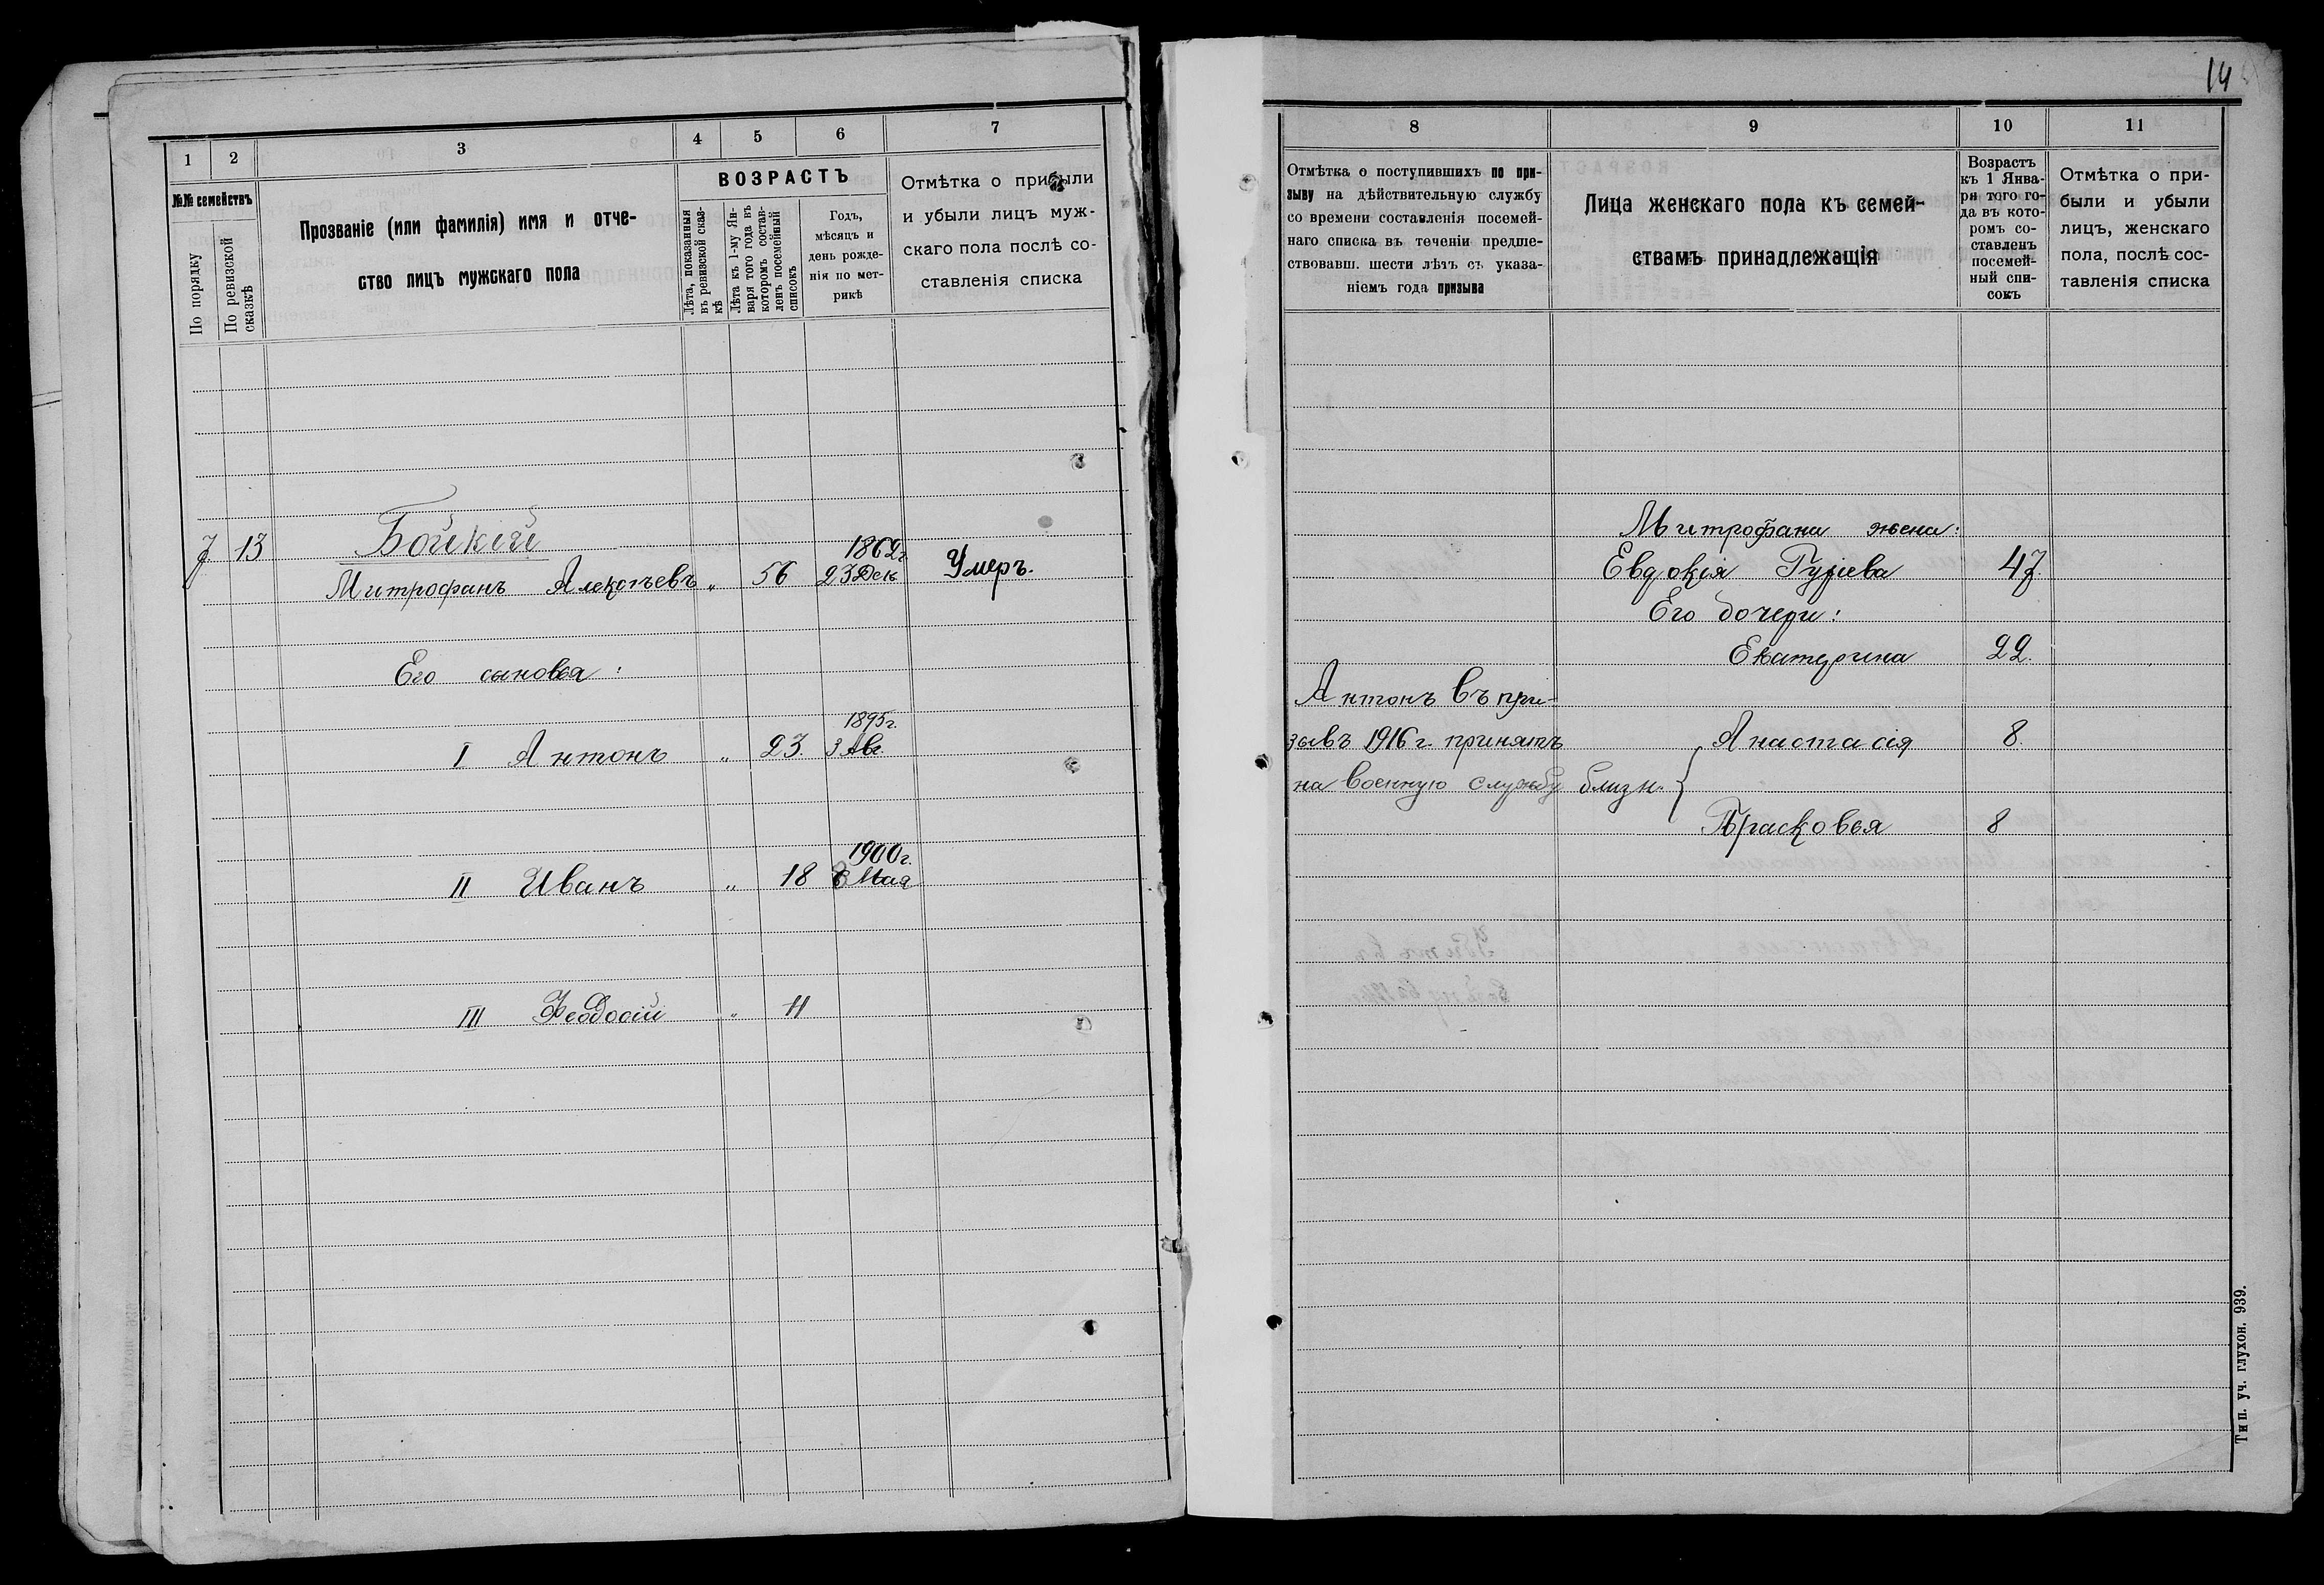 14
1 2 3 4 5 6 7
№№ семействъ
По порядку
По ревизской сказкѣ
Прозваніе (или фамилія) имя и отче-
ство лицъ мужскаго пола
ВОЗРАСТЪ
Лѣта, показанныя
въ ревизской сказ-
кѣ
Лѣта къ 1-му Ян-
варя того года въ
которомъ состав-
ленъ посемейный
списокъ
Годъ,
мѣсяцъ и
день рожде-
нія по мет-
рикѣ
Отмѣтка о прибыли
и убыли лицъ муж-
скаго пола послѣ со-
ставленія списка
7 13 Бойкій
Митрофанъ 56 1862г. 23 Дек Умеръ.
Его сыновья:
I Антонъ " 23. 1895г. 3 Авг.
II Иванъ " 18 1900г. 8 Мая
III Феодосій " 11
8 9 10 11
Отмѣтка о поступившихъ по при-
зыву на дѣйствительную службу
со времени составленія посемей-
наго списка въ теченіи предше-
ствовавш. шести лѣтъ съ указа-
ніемъ года призыва
Лица женскаго пола къ семей-
ствамъ принадлежащія
Возрастъ
къ 1 Янва-
ря того го-
да въ кото-
ромъ со-
ставленъ
посемей-
ный спи-
сокъ
Отмѣтка о при-
были и убыли
лицъ, женскаго
пола, послѣ сос-
тавленія списка
Митрофана жена:
Евдокія Гуріева 47.
Его дочери:
Екатерина 22.
Антонъ въ при-
зывъ 1916 г. принятъ Анастасія 8.
на военную службу близн.
Прасковья 8
Тип. уч. глухон. 939.